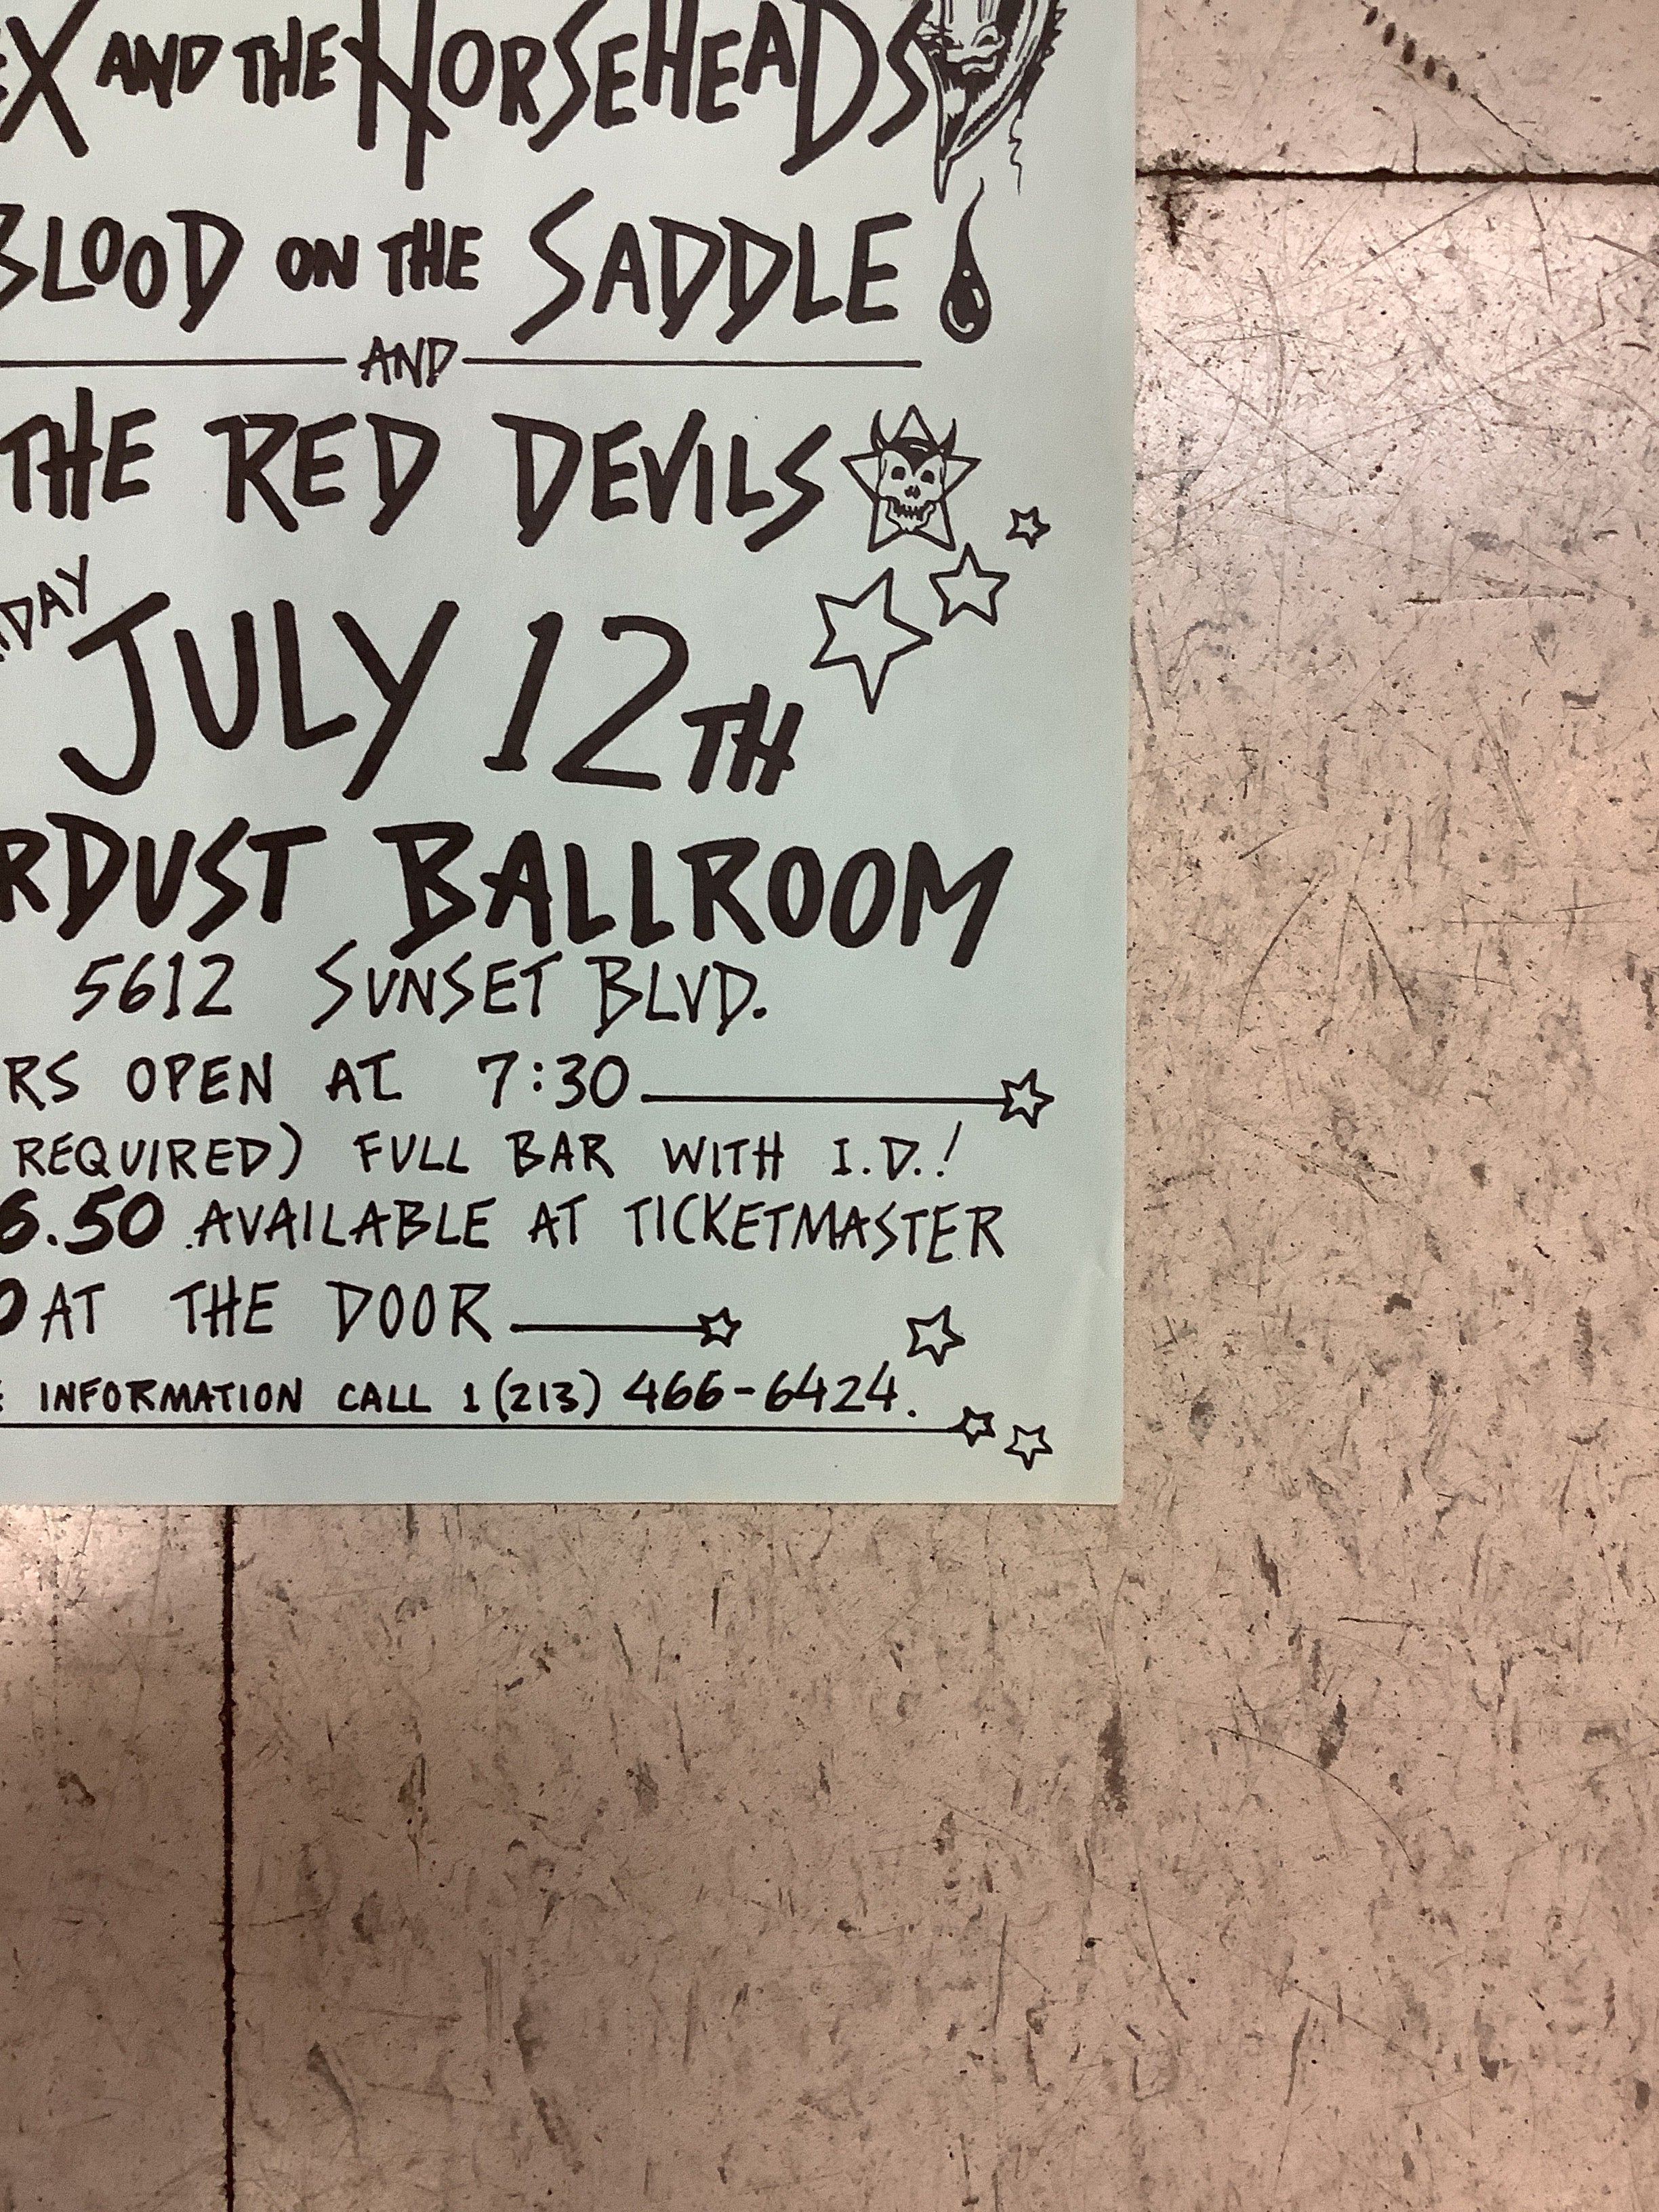 EX AND THE HORSEHEADS
BLOOD ON THE SADDLE
AND
THE RED DEVILS
IDAY
JULY 12TH
RDUST BALLROOM
5612 SUNSET BLVD.
RS OPEN AT 7:30
REQUIRED) FULL BAR WITH I.D.!
6.50 AVAILABLE AT TICKETMASTER
0 AT THE DOOR
E INFORMATION CALL 1 (213) 466-6424.